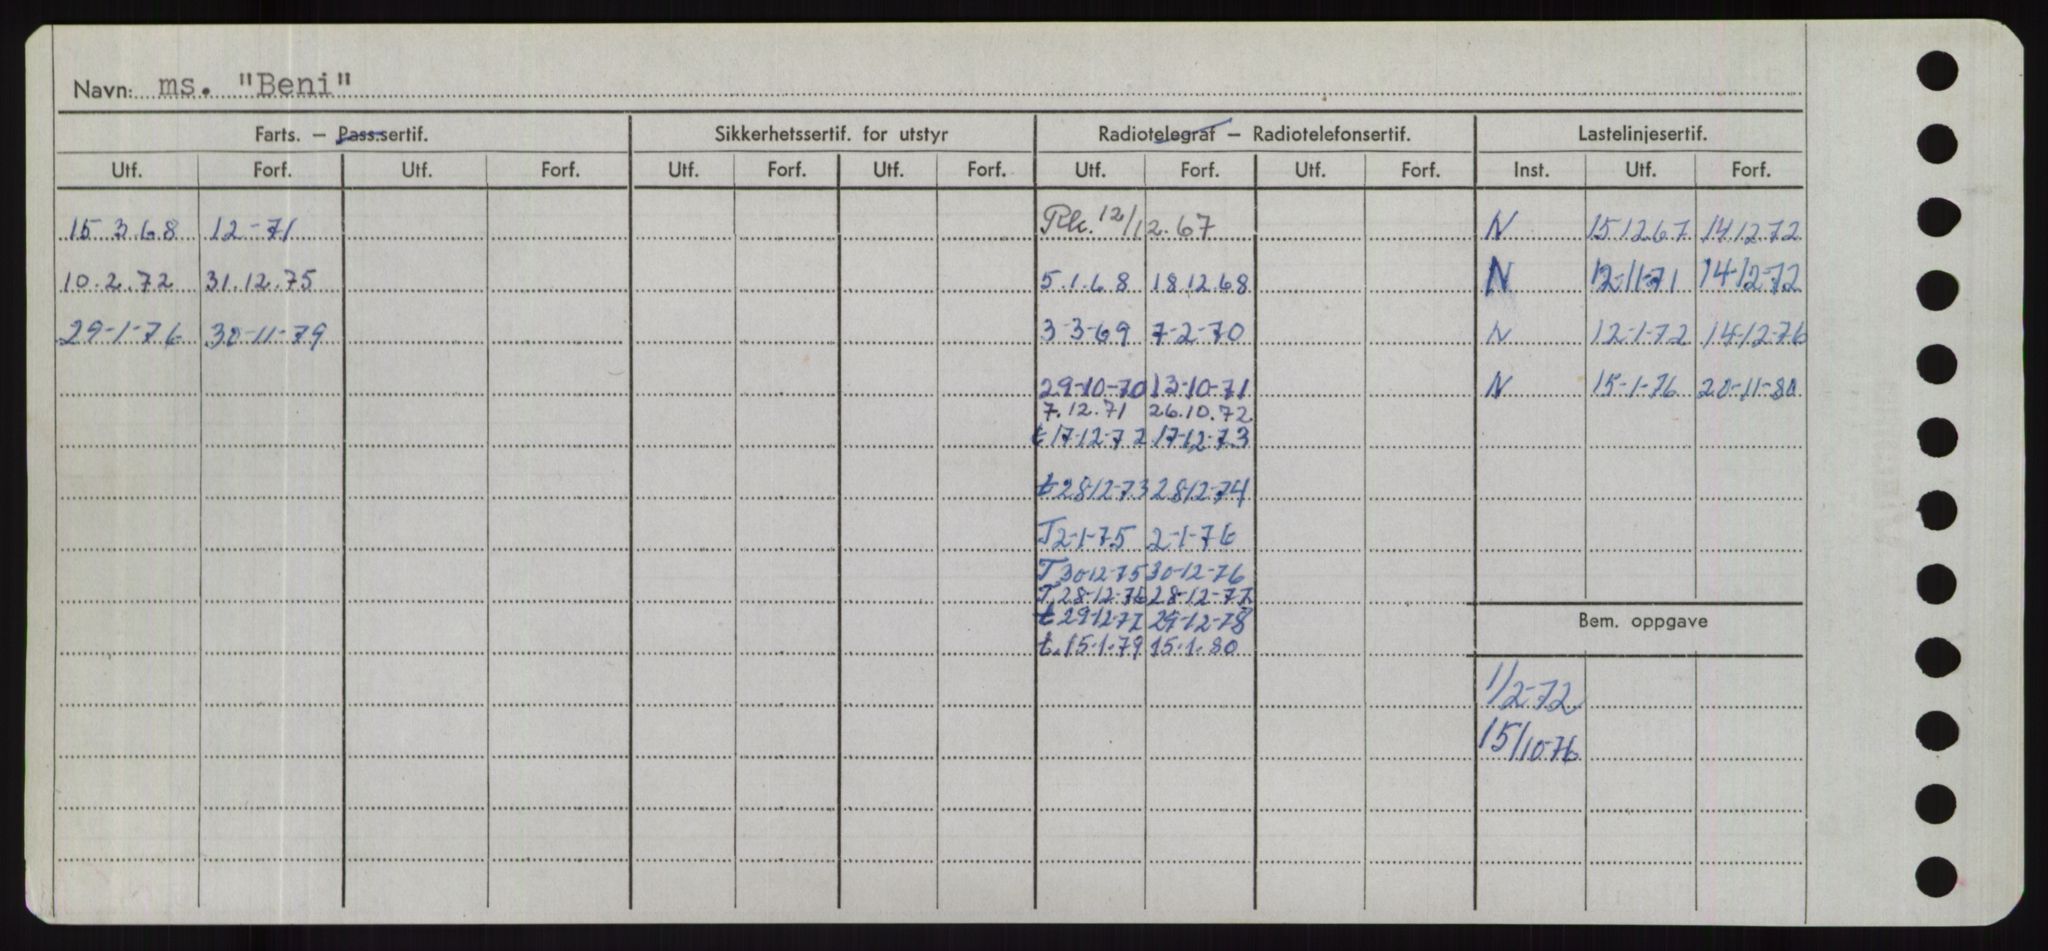 Navn: ms. "Beni"
Farts. — Pass.sertif. Sikkerhetssertif. for utstyr Radiotelegraf — Radiotelefonsertif. Lastelinjesertif.
Utf. Forf. Utf. Forf. Utf. Forf. Utf. Forf. Utf. Forf. Utf. Forf. Inst. Utf. Forf.
15 3.68 12-71 12/12.67 N 15 12 67 14 12 72
10.2.72 31.12.75 5.1.68 18 12.68 N 12-11-71 14-12-72
29-1-76 30-11-79 3-3-69 7-2-70 N 12-1-72 14-12-76
29-10-70 13-10-71 N 15-1-76 20-11-80
7.12.71 26.10.72
t 17-12-72 17-12-73
t 28-12-73 28-12-74
T 2-1-75 2-1-76
T 30-12-75 30-12-76
T. 28-12-76 28-12-77
t 29-12-77 29-12-78
t. 15-1-79 15-1.80
Bem. oppgave
1/2-72
15/10-76